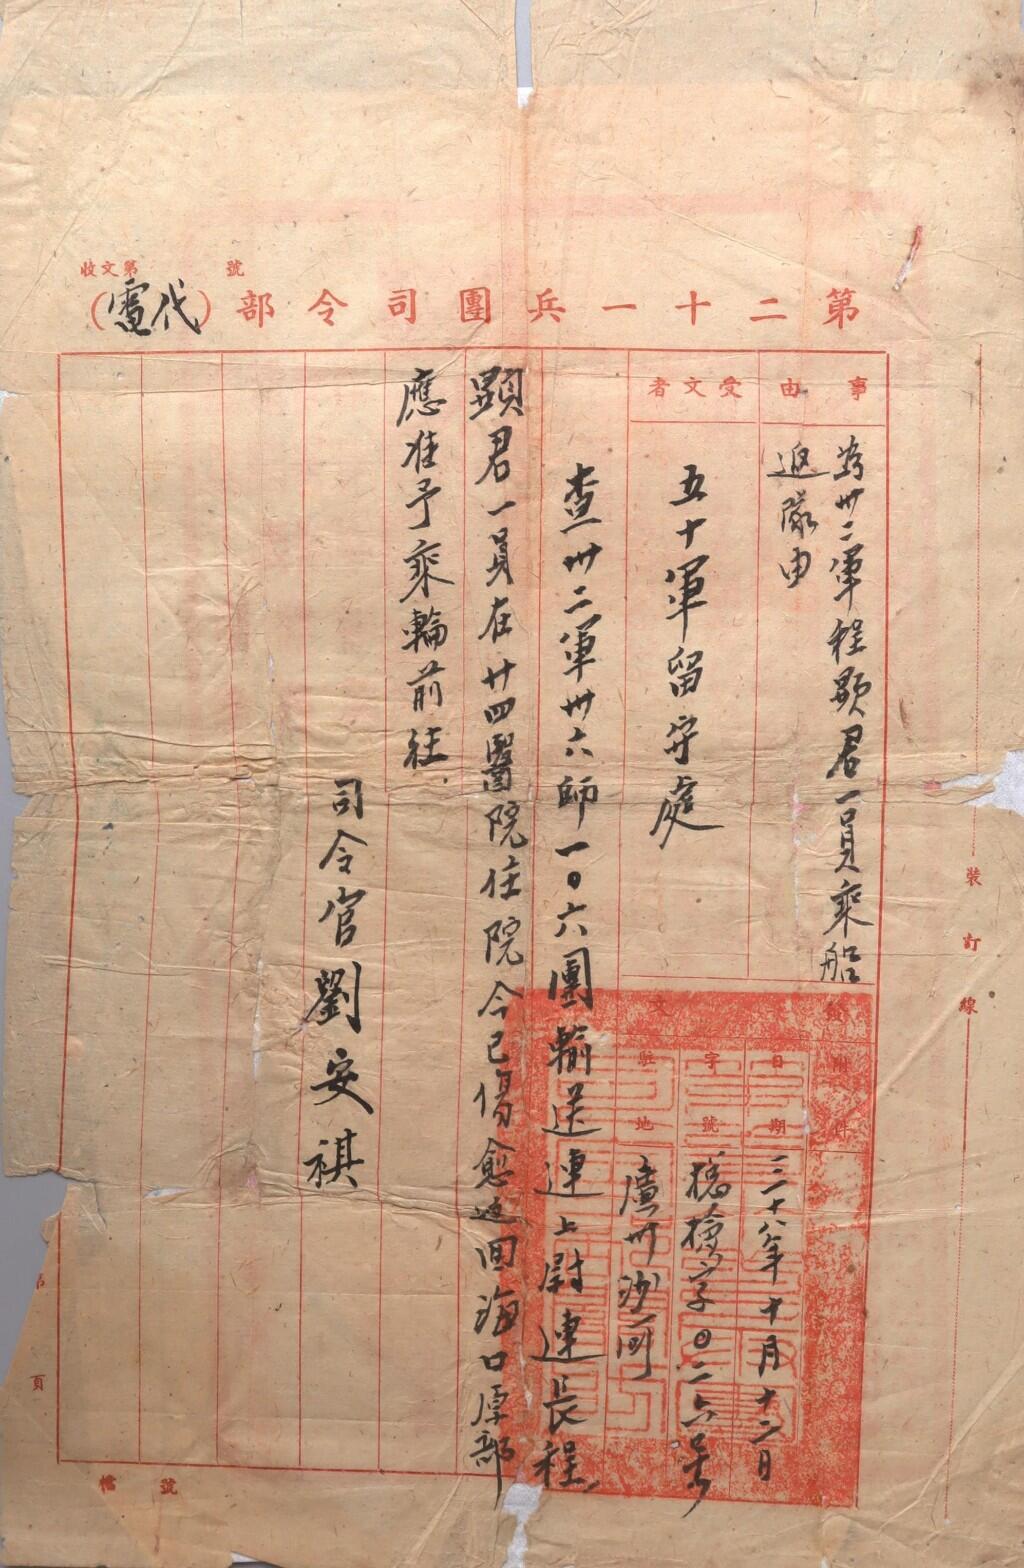 收文第　號
第二十一兵團司令部（代電）
事由
為卅二軍程顯君一員乘船
返隊由
受文者
五十軍留守處
附件
日期
三十八年十月十二日
字號
橋檢字〇二六号
駐地
廣州沙河
查卅二軍卅六師一〇六團輸送連上尉連長程
顯君一員在廿四醫院住院今已傷愈返回海口原部
應准予乘輪前往
司令官劉安祺
裝訂線
第　頁
檔　號